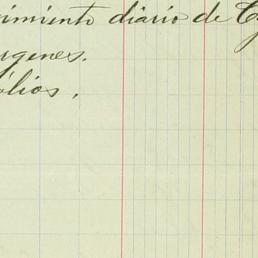 imiento diario de
rgenes.
olios.